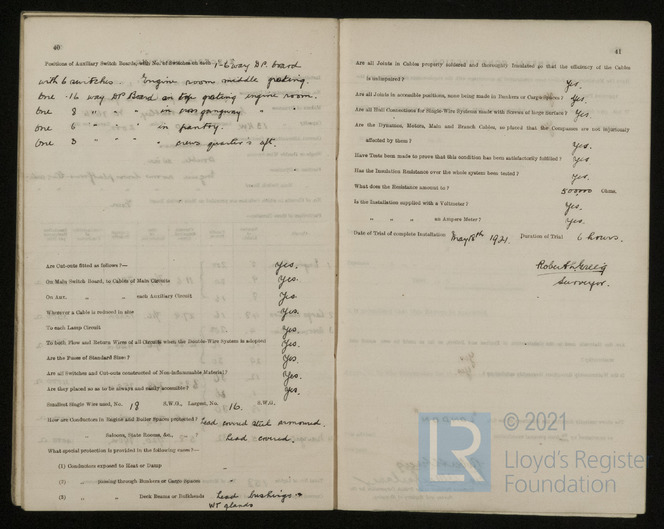 40
Positions of Auxiliary Switch Boards, with No. of Switches on each 1-6 way DP. board
with 6 switches Engine room middle grating.
One 16 way DP Board on top grating engine room.
One 8 " " " in cross gangway "
One 6 " " " in pantry.
One 3 " " " " crews quarters aft.
Are Cut-outs fitted as follows?— Yes.
On Main Switch Board, to Cables of Main Circuits Yes.
On Aux. " " each Auxiliary Circuit Yes.
Wherever a Cable is reduced in size Yes.
To each Lamp Circuit Yes.
To both Flow and Return Wires of all Circuits when the Double-Wire System is adopted Yes.
Are the Fuses of Standard Size? Yes.
Are all Switches and Cut-outs constructed of Non-inflammable Material? Yes.
Are they placed so as to be always and easily accessible? Yes.
Smallest Single Wire used, No. 18 S.W.G., Largest, No. 16. S.W.G.
How are Conductors in Engine and Boiler Spaces protected? Lead covered steel armoured.
" Saloons, State Rooms, &c., ? Lead covered.
What special protection is provided in the following cases?—
(1) Conductors exposed to Heat or Damp -
(2) " passing through Bunkers or Cargo Spaces -
(3) " " Deck Beams or Bulkheads Lead bushings &
WT glands
41
Are all Joints in Cables properly soldered and thoroughly insulated so that the efficiency of the Cables
is unimpaired? Yes.
Are all Joints in accessible positions, none being made in Bunkers or Cargo Spaces? Yes.
Are all Hull Connections for Single-Wire Systems made with Screws of large Surface? Yes.
Are the Dynamos, Motors, Main and Branch Cables, so placed that the Compasses are not injuriously
affected by them? Yes.
Have Tests been made to prove that this condition has been satisfactorily fulfilled? Yes
Has the Insulation Resistance over the whole system been tested? Yes.
What does the Resistance amount to? 500000 Ohms.
Is the Installation supplied with a Voltmeter? Yes.
" " " an Ampere Meter? Yes.
Date of Trial of complete Installation May 18th 1921. Duration of Trial 6 hours.
Surveyor.
LR
© 2021
Lloyd's Register
Foundation